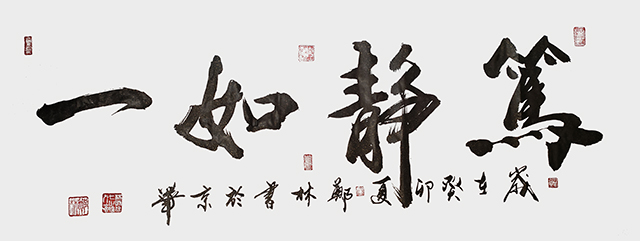 篤静如一
歲在癸卯夏鄭林書於京華